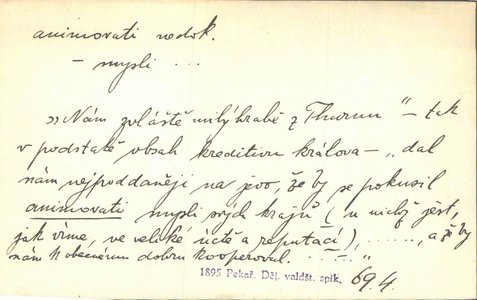 animovati nedok.
– mysli ...
»Nám zvláště milý hrabě z Thurnu" – tak
v podstatě obsah kreditivu králova – „dal
nám nejpoddaněji na jevo, že by se pokusil
animovati mysli svých krajů (u nichž jest,
jak víme, ve veliké úctě a reputací), ......., a že by
nám k obecnému dobru kooperoval. . – . – . "
1895 Pekař. Děj. valdšt. spik. 694.